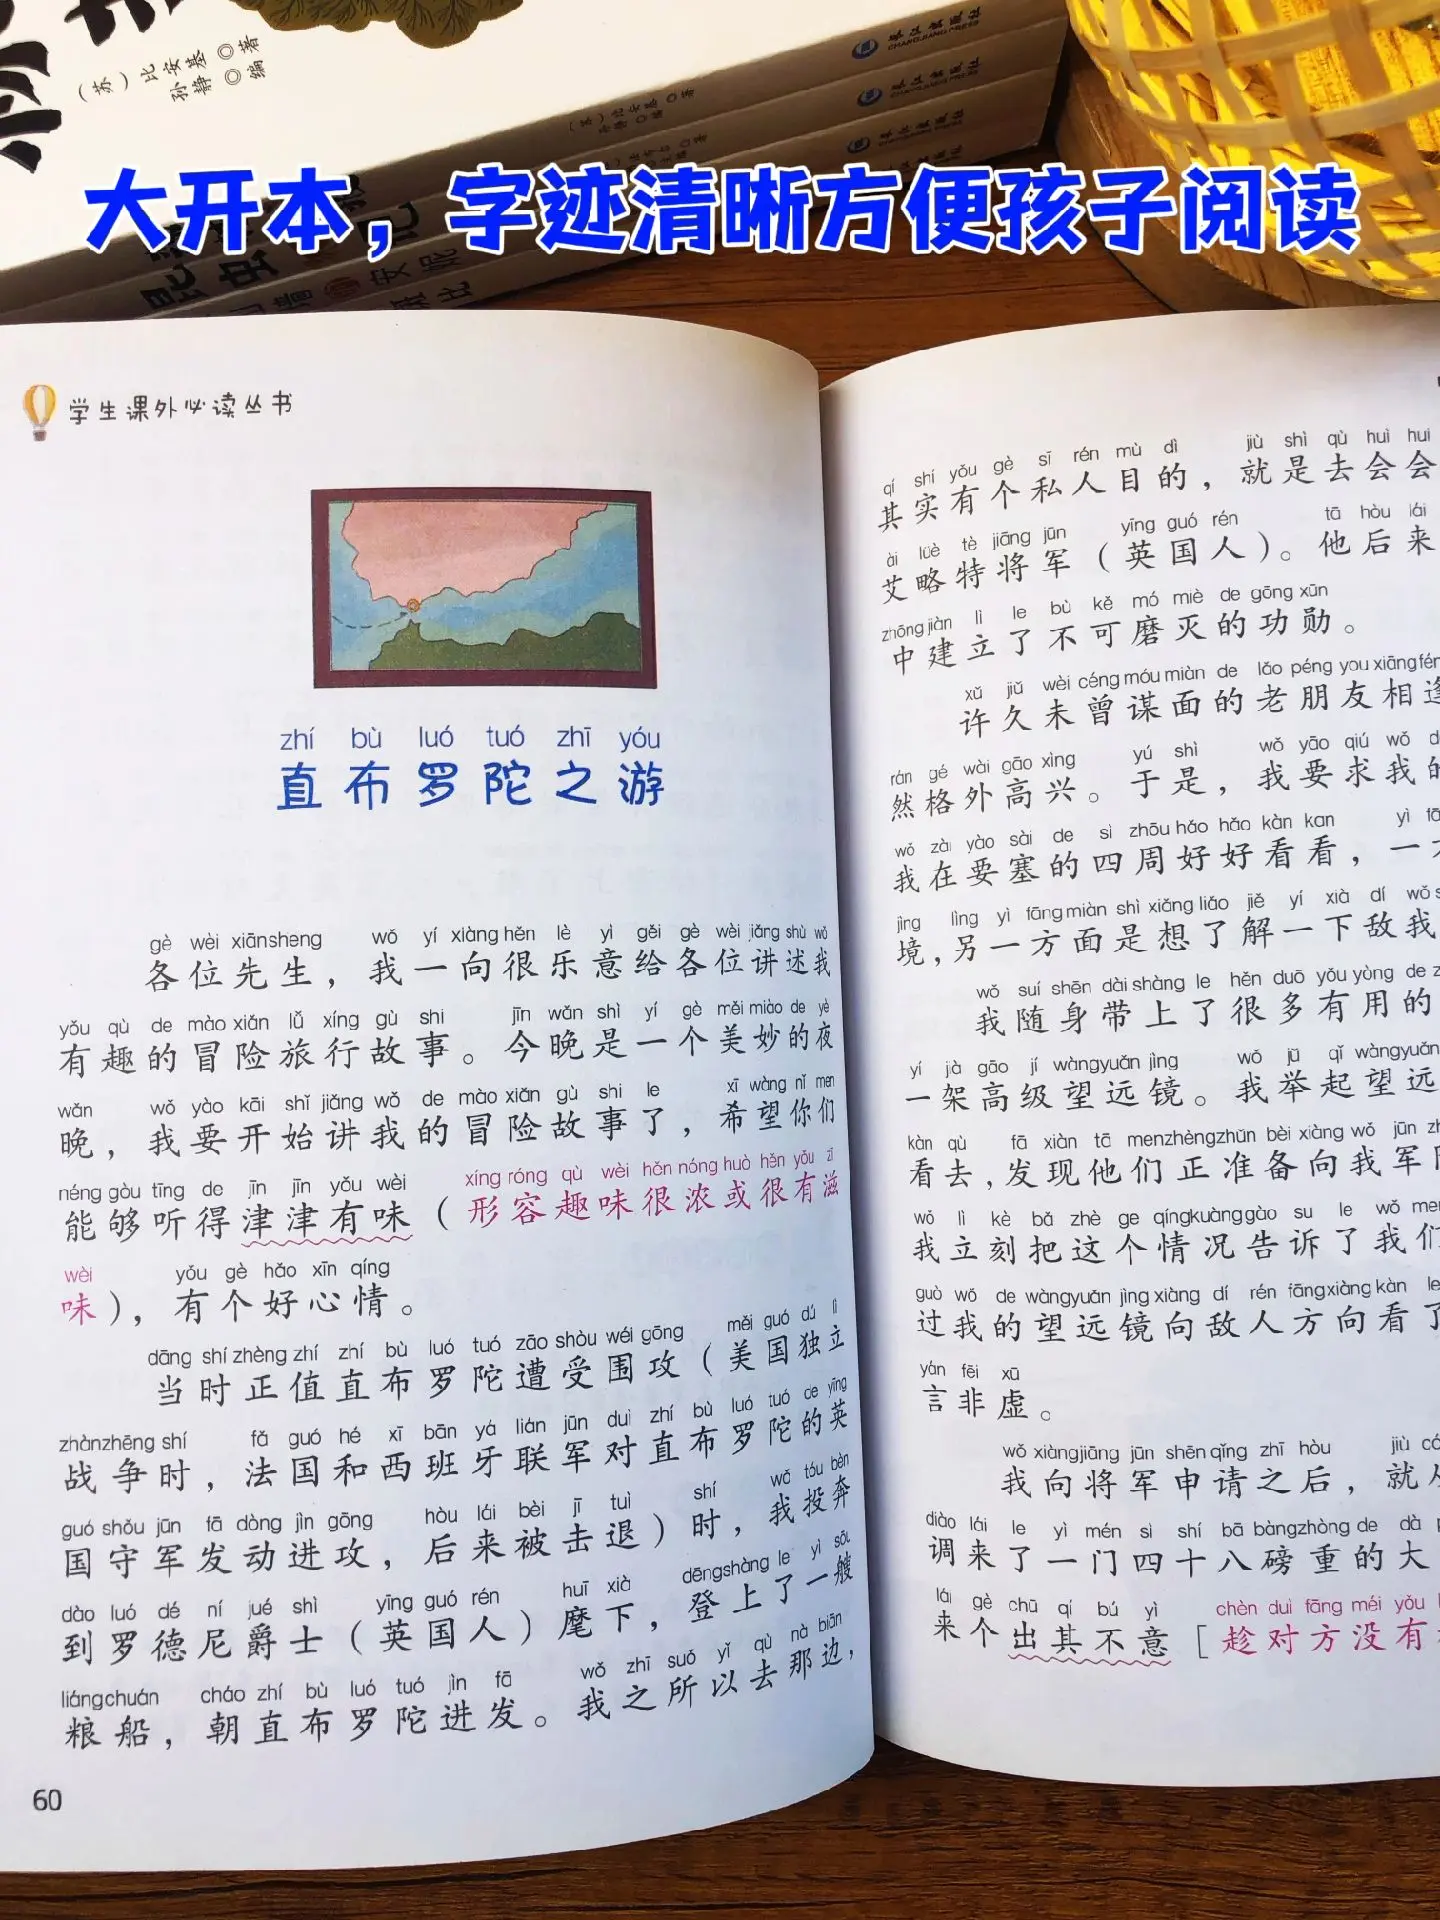 （苏）比安基◎著
孙静◎编
长江出版社
CHANGJIANG PRESS
大开本，字迹清晰方便孩子阅读
学生课外必读丛书
zhí bù luó tuó zhī yóu
直布罗陀之游
gè wèi xiānsheng wǒ yí xiàng hěn lè yì gěi gè wèi jiǎng shù wǒ
各位先生，我一向很乐意给各位讲述我
yǒu qù de mào xiǎn lǚ xíng gù shi jīn wǎn shì yí gè měi miào de yè
有趣的冒险旅行故事。今晚是一个美妙的夜
wǎn wǒ yào kāi shǐ jiǎng wǒ de mào xiǎn gù shi le xī wàng nǐ men
晚，我要开始讲我的冒险故事了，希望你们
néng gòu tīng de jīn jīn yǒu wèi xíng róng qù wèi hěn nóng huò hěn yǒu zī
能够听得津津有味（形容趣味很浓或很有滋
wèi yǒu gè hǎo xīn qíng
味），有个好心情。
dāng shí zhèng zhí zhí bù luó tuó zāo shòu wéi gōng měi guó dú lì
当时正值直布罗陀遭受围攻（美国独立
zhànzhēng shí fǎ guó hé xī bān yá lián jūn duì zhí bù luó tuó de yīng
战争时，法国和西班牙联军对直布罗陀的英
guó shǒu jūn fā dòng jìn gōng hòu lái bèi jī tuì shí wǒ tóu bèn
国守军发动进攻，后来被击退）时，我投奔
dào luó dé ní jué shì yīng guó rén huī xià dēngshàng le yì sōu
到罗德尼爵士（英国人）麾下，登上了一艘
liángchuán cháo zhí bù luó tuó jìn fā wǒ zhī suó yǐ qù nà biān
粮船，朝直布罗陀进发。我之所以去那边，
60
qí shí yǒu gè sī rén mù dì jiù shì qù huì hui
其实有个私人目的，就是去会会
ài lüè tè jiāng jūn yīng guó rén tā hòu lái
艾略特将军（英国人）。他后来
zhōng jiàn lì le bù kě mó miè de gōng xūn
中建立了不可磨灭的功勋。
xǔ jiǔ wèi céng móu miàn de lǎo péng you xiāng fén
许久未曾谋面的老朋友相逢
rán gé wài gāo xìng yú shì wǒ yāo qiú wǒ d
然格外高兴。于是，我要求我的
wǒ zài yào sài de sì zhōu hǎo hǎo kàn kan yì fā
我在要塞的四周好好看看，一方
jìng lìng yì fāng miàn shì xiǎng liǎo jiě yí xià dí wǒ
境，另一方面是想了解一下敌我
wǒ suí shēn dài shàng le hěn duō yǒu yòng de
我随身带上了很多有用的
yí jià gāo jí wàngyuǎn jìng wǒ jǔ qǐ wàngyuǎn
一架高级望远镜。我举起望远
kàn qù fā xiàn tā menzhèngzhǔn bèi xiàng wǒ jūn
看去，发现他们正准备向我军
wǒ lì kè bǎ zhè ge qíngkuànggào su le wǒ men
我立刻把这个情况告诉了我们
guò wǒ de wàngyuǎn jìng xiàng dí rén fāngxiàng kàn le
过我的望远镜向敌人方向看了
yán fēi xū
言非虚。
wǒ xiàngjiāng jūn shēn qǐng zhī hòu jiù
我向将军申请之后，就从
diào lái le yì mén sì shí bā bàngzhòng de dà
调来了一门四十八磅重的大
lái gè chū qí bú yì chèn duì fāng méi yǒu
来个出其不意［趁对方没有